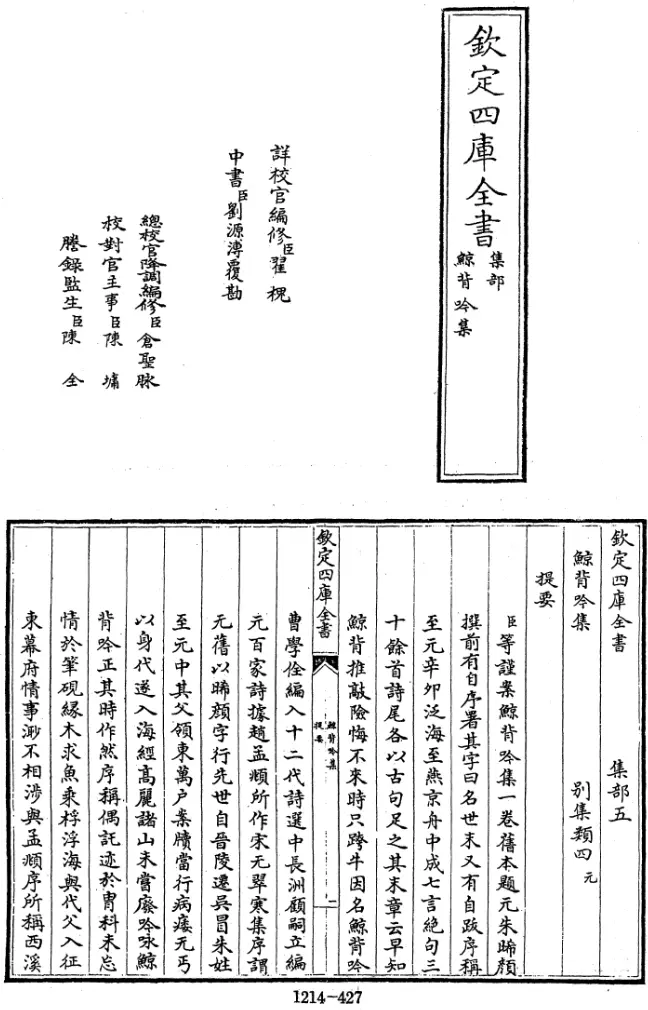 欽定四庫全書
集部
鯨背吟集
詳校官編修臣翟槐
中書臣劉源溥覆勘
總校官降調編修臣倉聖脉
校對官主事臣陳墉
謄錄監生臣陳全
欽定四庫全書 集部五
鯨背吟集 別集類四 元
提要
臣等謹案鯨背吟集一卷舊本題元朱晞顏
撰前有自序署其字曰名世末又有自跋序稱
至元辛卯泛海至燕京舟中成七言絶句三
十餘首詩尾各以古句足之其末章云早知
鯨背推敲險悔不來時只跨牛因名鯨背吟
欽定四庫全書
鯨背吟集
提要
一
曹學佺編入十二代詩選中長洲顧嗣立編
元百家詩據趙孟頫所作宋无翠寒集序謂
无舊以晞顔字行先世自晉陵遷吳冒朱姓
至元中其父領東萬户案牘當行病痿无丐
以身代遂入海經高麗諸山未嘗廢吟咏鯨
背吟正其時作然序稱偶託迹於胄科未忘
情於筆硯緣木求魚乘桴浮海與代父入征
東幕府情事渺不相涉與孟頫序所稱西溪
1214-427